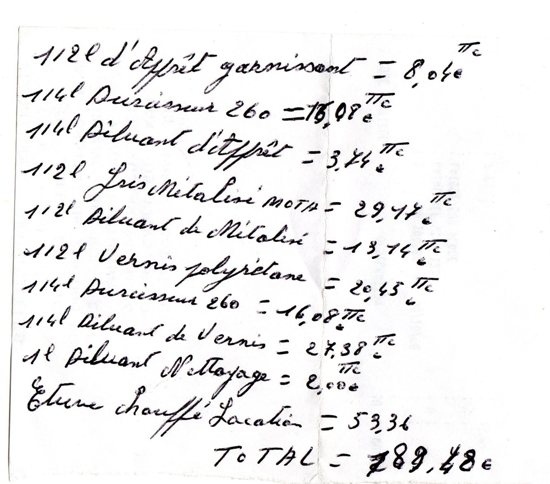 1/2l d'Apprêt garnissant = 8,04€ TTC
1/4l Durcisseur 260 = 16,08€ TTC
1/4l Diluant d'Apprêt = 3,74€ TTC
1/2l Gris Métalisé MOTA = 29,17€ TTC
1/2l Diluant de Métalisé = 13,14€ TTC
1/2l Vernis polyrétane = 20,45€ TTC
1/4l Durcisseur 260 = 16,08€ TTC
1/4l Diluant de Vernis = 27,38€ TTC
1l Diluant Nettoyage = 2,00€ TTC
Etuve chauffé Location = 53,36
TOTAL = 189,48€